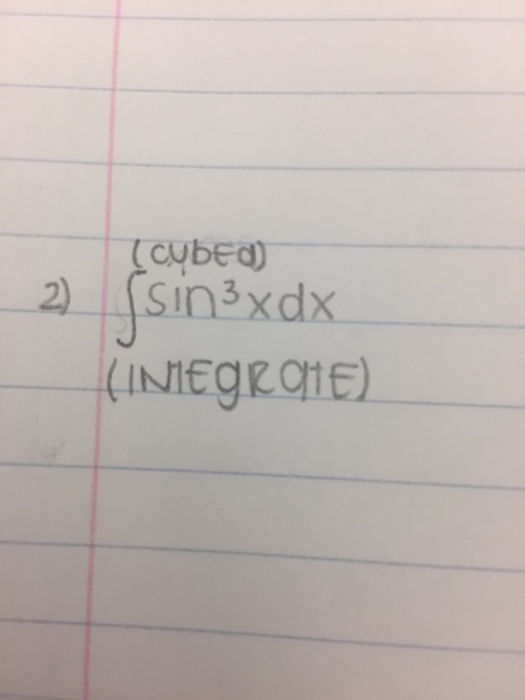 (cubed)
2) ∫sin³xdx
(INTEgRatE)